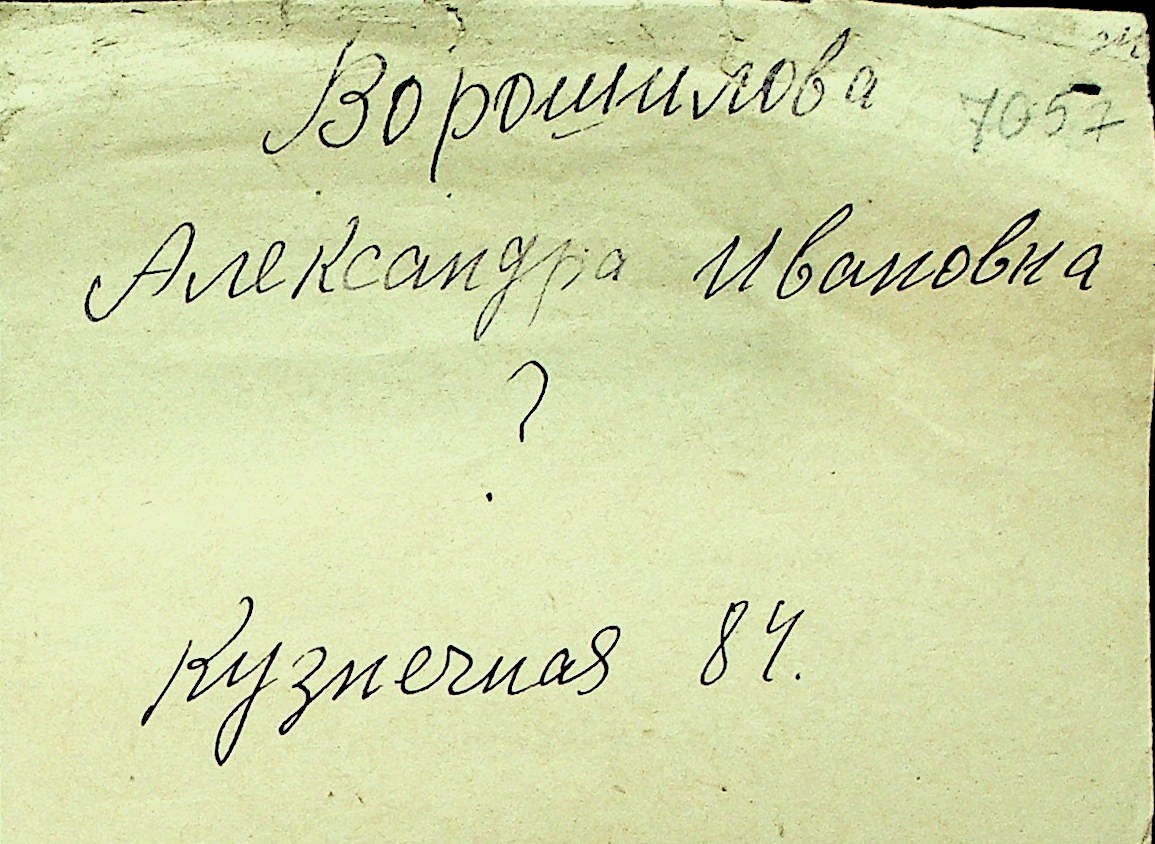 Ворошилова 7057
Александра Ивановна
?
Кузнечная 84.